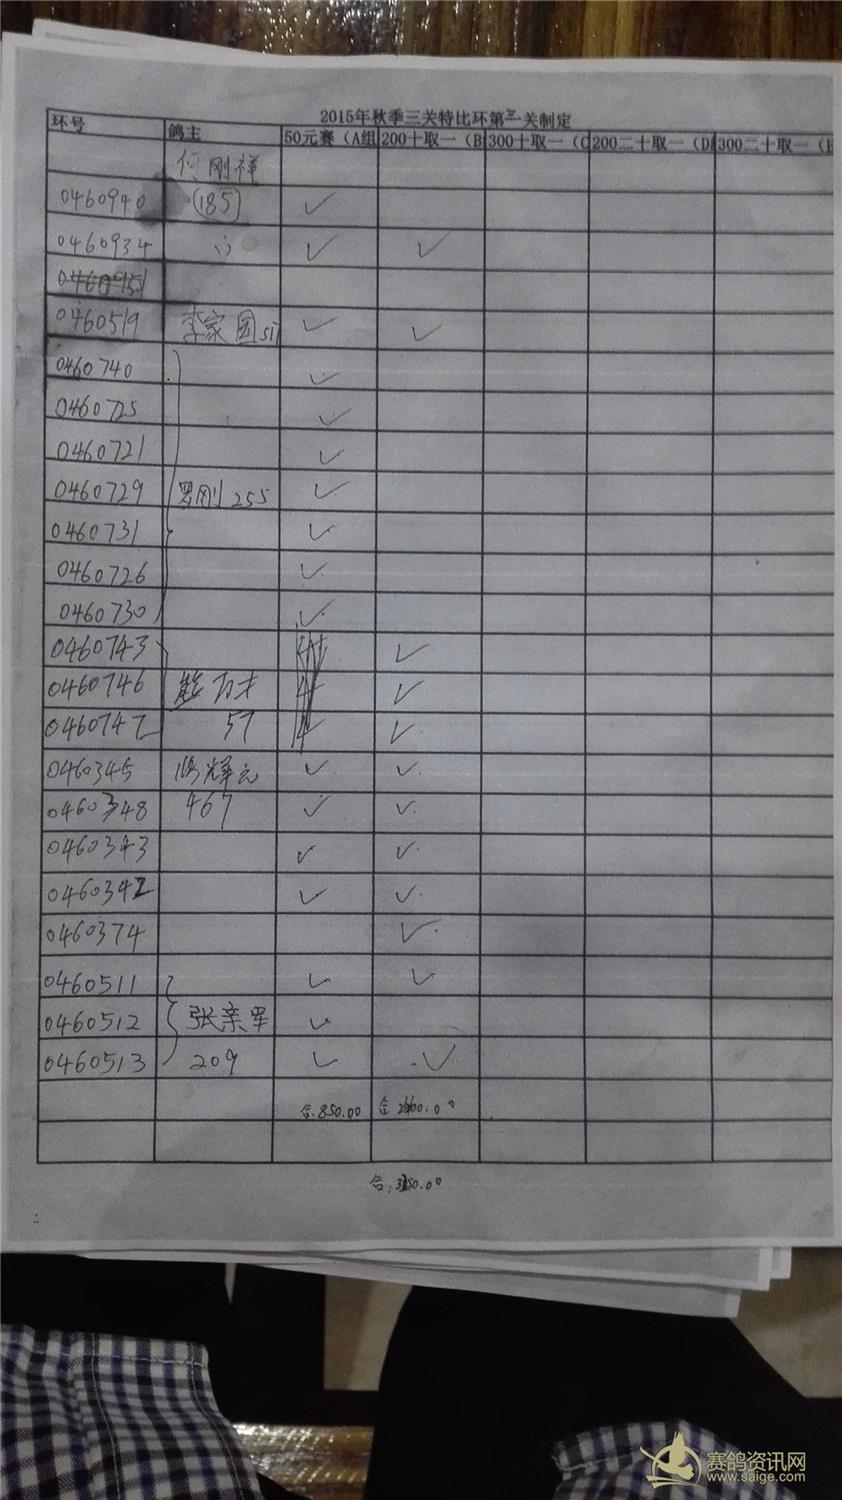 2015年秋季三关特比环第三关制定
环号 鸽主 50元赛（A组 200十取一（B 300十取一（C 200二十取一（D 300二十取一（E
何刚祥
0460940 (185) ✓
0460934 ✓ ✓
0460519 李家园 511 ✓ ✓
0460740 ✓
0460725 ✓
0460721 ✓
0460729 罗刚 255 ✓
0460731 ✓
0460726 ✓
0460730 ✓
0460743 ✓
0460746 熊万才 ✓
0460747 57 ✓
0460345 辉元 ✓ ✓
0460348 467 ✓ ✓
0460343 ✓ ✓
0460342 ✓ ✓
0460374 ✓
0460511 ✓ ✓
0460512 张亲军 ✓
0460513 209 ✓ ✓
合.850.00 合
合:
赛鸽资讯网
www.saige.com